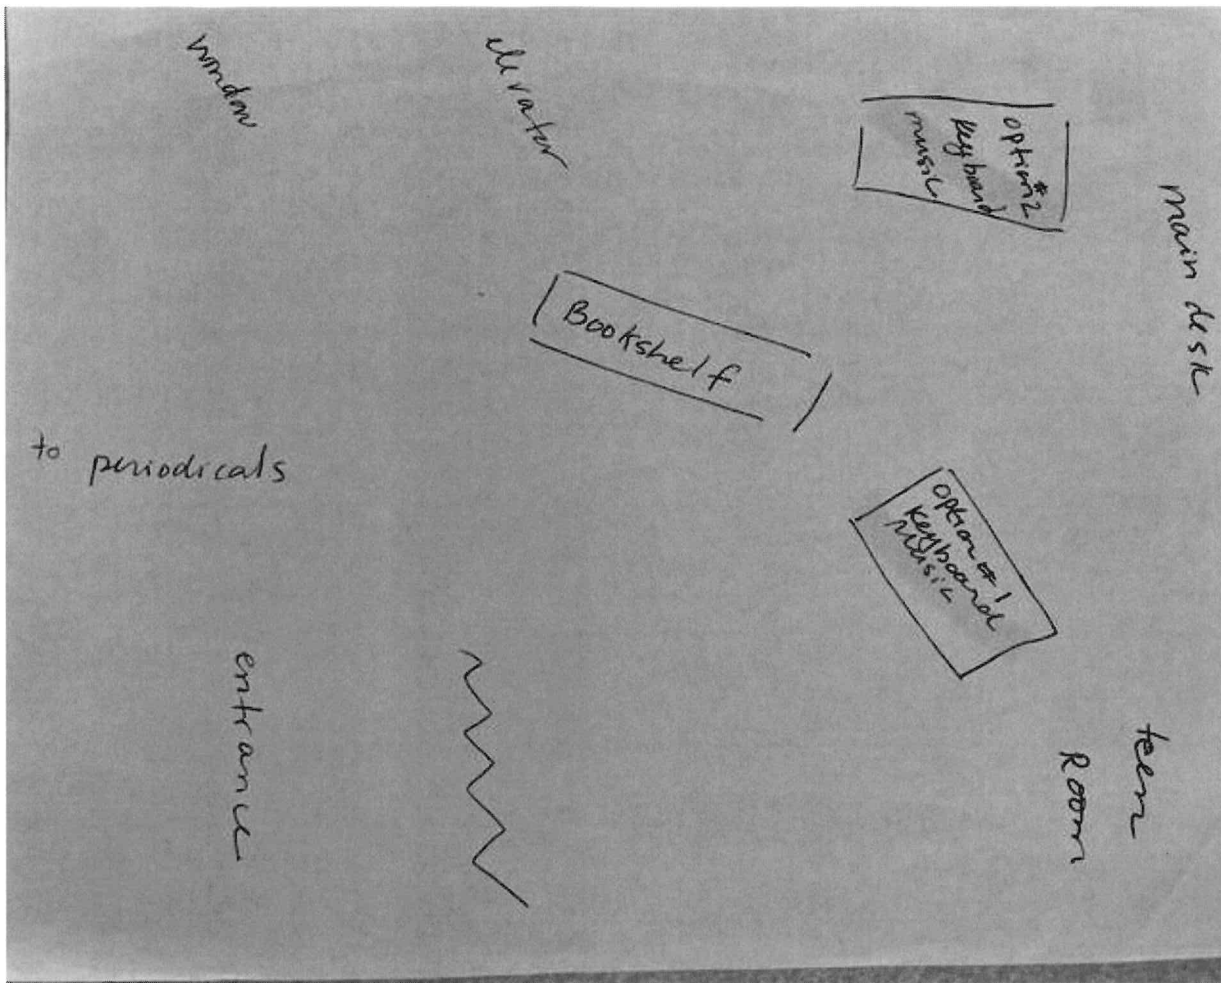 window
elevator
option #2
keyboard
music
main desk
Bookshelf
to periodicals
option #1
keyboard
music
entrance
teen
Room